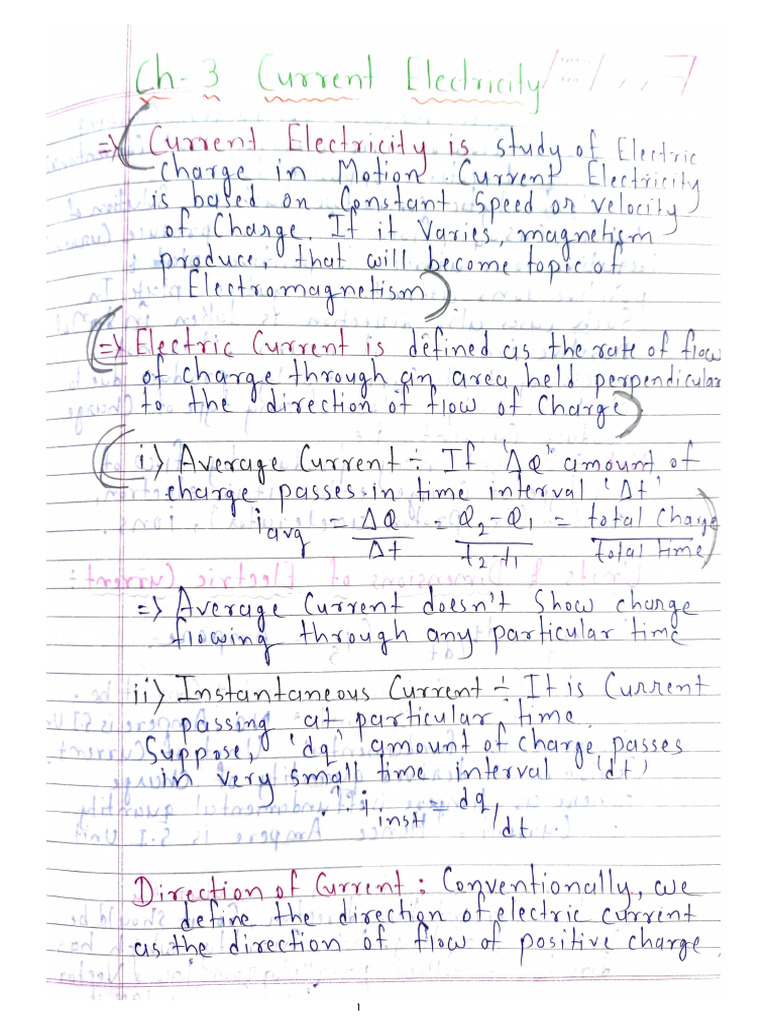 Ch-3 Current Electricity
=> Current Electricity is study of Electric
charge in Motion. Current Electricity
is based on Constant Speed or velocity
of Charge. If it varies, magnetism
produce, that will become topic of
Electromagnetism
=> Electric Current is defined as the rate of flow
of charge through an area held perpendicular
to the direction of flow of Charge
i) Average Current ÷ If 'ΔQ' amount of
charge passes in time interval 'Δt'
i avg = ΔQ/Δt = Q2-Q1/t2-t1 = total Charge/total time
=> Average Current doesn't Show charge
flowing through any particular time
ii) Instantaneous Current ÷ It is Current
passing at particular time.
Suppose, 'dq' amount of charge passes
in very small time interval 'dt'
∴ i inst = dq/dt.
Direction of Current : Conventionally, we
define the direction of electric current
as the direction of flow of positive charge.
1